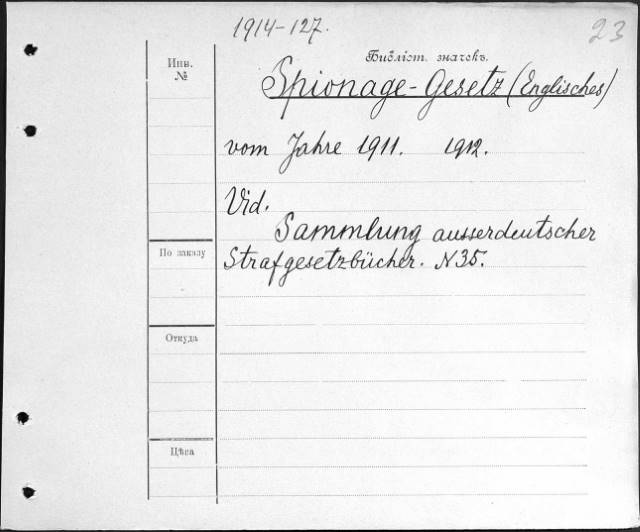 1914-127.
23
Библіот. значекъ.
Инв.
№
Spionage-Gesetz (Englisches)
vom Jahre 1911. 1912.
Vid.
Sammlung ausserdeutscher
Strafgesetzbücher. N 35.
По заказу
Откуда
Цѣна